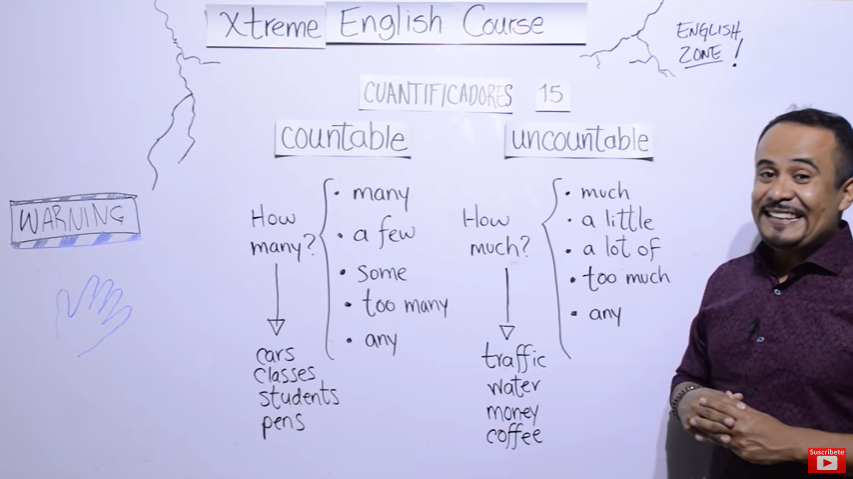 Xtreme English Course
ENGLISH
ZONE!
CUANTIFICADORES 15
countable
uncountable
WARNING
How
many?
• many
• a few
• some
• too many
• any
cars
classes
students
pens
How
much?
• much
• a little
• a lot of
• too much
• any
traffic
water
money
coffee
Suscríbete